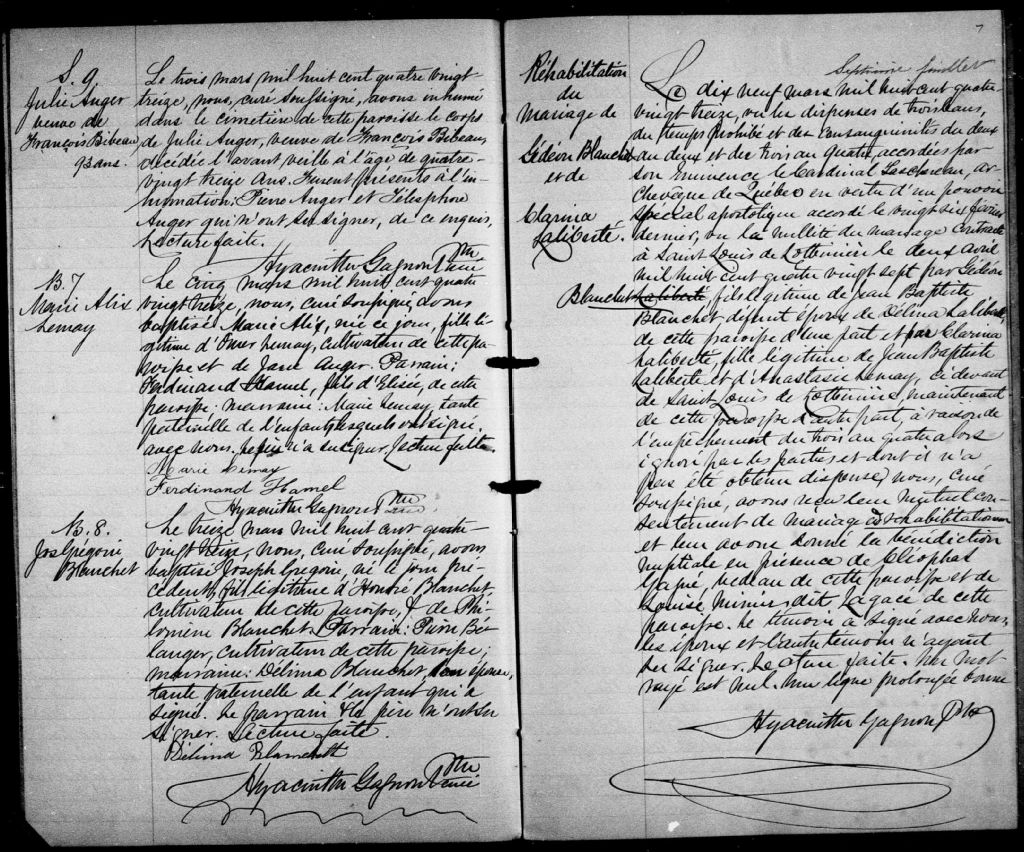 S. 9
Julie Auger
veuve de
François Bibeau
93 ans.
Le trois mars mil huit cent quatre vingt
treize, nous, curé soussigné, avons inhumé
dans le cimetière de cette paroisse le corps
de Julie Auger, veuve de François Bibeau,
décédée l'avant veille à l'âge de quatre-
vingt treize ans. Furent présents à l'in-
humation: Pierre Auger et Télesphore
Auger qui n'ont su signer, de ce enquis,
Lecture faite.
Hyacinthe Gagnon Ptre
curé
B. 7
Marie Alix
Lemay
Le cinq mars mil huit cent quatre
vingt treize, nous, curé soussigné, avons
baptisé Marie Alix, née ce jour, fille lé-
gitime d'Omer Lemay, cultivateur de cette pa-
roisse et de Jane Auger. Parrain:
Ferdinand Hamel, fils d'Elisée, de cette
paroisse. marraine: Marie Lemay, tante
paternelle de l'enfant lesquels ont signé
avec nous. Le père n'a su signer. Lecture faite.
Marie Lemay
Ferdinand Hamel
Hyacinthe Gagnon Ptre
curé
B. 8.
Jos Grégoire
Blanchet
Le treize mars mil huit cent quatre
vingt treize, nous, curé soussigné, avons
baptisé Joseph Grégoire, né le jour pré-
cédent, fils légitime d'Honoré Blanchet,
cultivateur de cette paroisse, & de Phi-
lomène Blanchet. Parrain: Pierre Bé-
langer, cultivateur de cette paroisse;
marraine: Délima Blanchet, son épouse,
tante paternelle de l'enfant qui a
signé. Le parrain & le père n'ont su
signer. Lecture faite.
Délima Blanchett
Hyacinthe Gagnon Ptre
curé
7
Septième feuillet
Réhabilitation
du
mariage de
Gédéon Blanchet
et de
Clarina
Laliberté.
Le dix neuf mars mil huit cent quatre
vingt treize, vu les dispenses de trois bans,
du temps prohibé et des consanguinités du deux
au deux et du trois au quatre, accordées par
son éminence le Cardinal Taschereau, ar-
chevêque de Québec en vertu d'un pouvoir
spécial apostolique accordé le vingt six
dernier, vu la nullité du mariage contracté
à Saint Louis de Lotbinière le deux avril
mil huit cent quatre vingt sept par Gédéon
Blanchet Laliberté, fils légitime de Jean Baptiste
Blanchet défunt époux de Délima Laliberté,
de cette paroisse d'une part et par Clarina
Laliberté, fille légitime de Jean Baptiste
Laliberté et d'Anastasie Lemay, ci devant
de Saint Louis de Lotbinière, maintenant
de cette paroisse d'autre part, à raison de
l'empêchement du trois au quatre alors
ignoré par les parties et dont il n'a
pas été obtenu dispense, nous, curé
soussigné, avons reçu leur mutuel con-
sentement de mariage de réhabilitation
et leur avons donné la bénédiction
nuptiale en présence de Cléophas
Gagné, bedeau de cette paroisse et de
Louise Mimier dit Lagacé de cette
paroisse. Le témoin a signé avec nous,
les époux et l'autre témoin n'ayant
su signer. Lecture faite. Un mot
rayé est nul. Une ligne prolongée bonne
Hyacinthe Gagnon Ptre